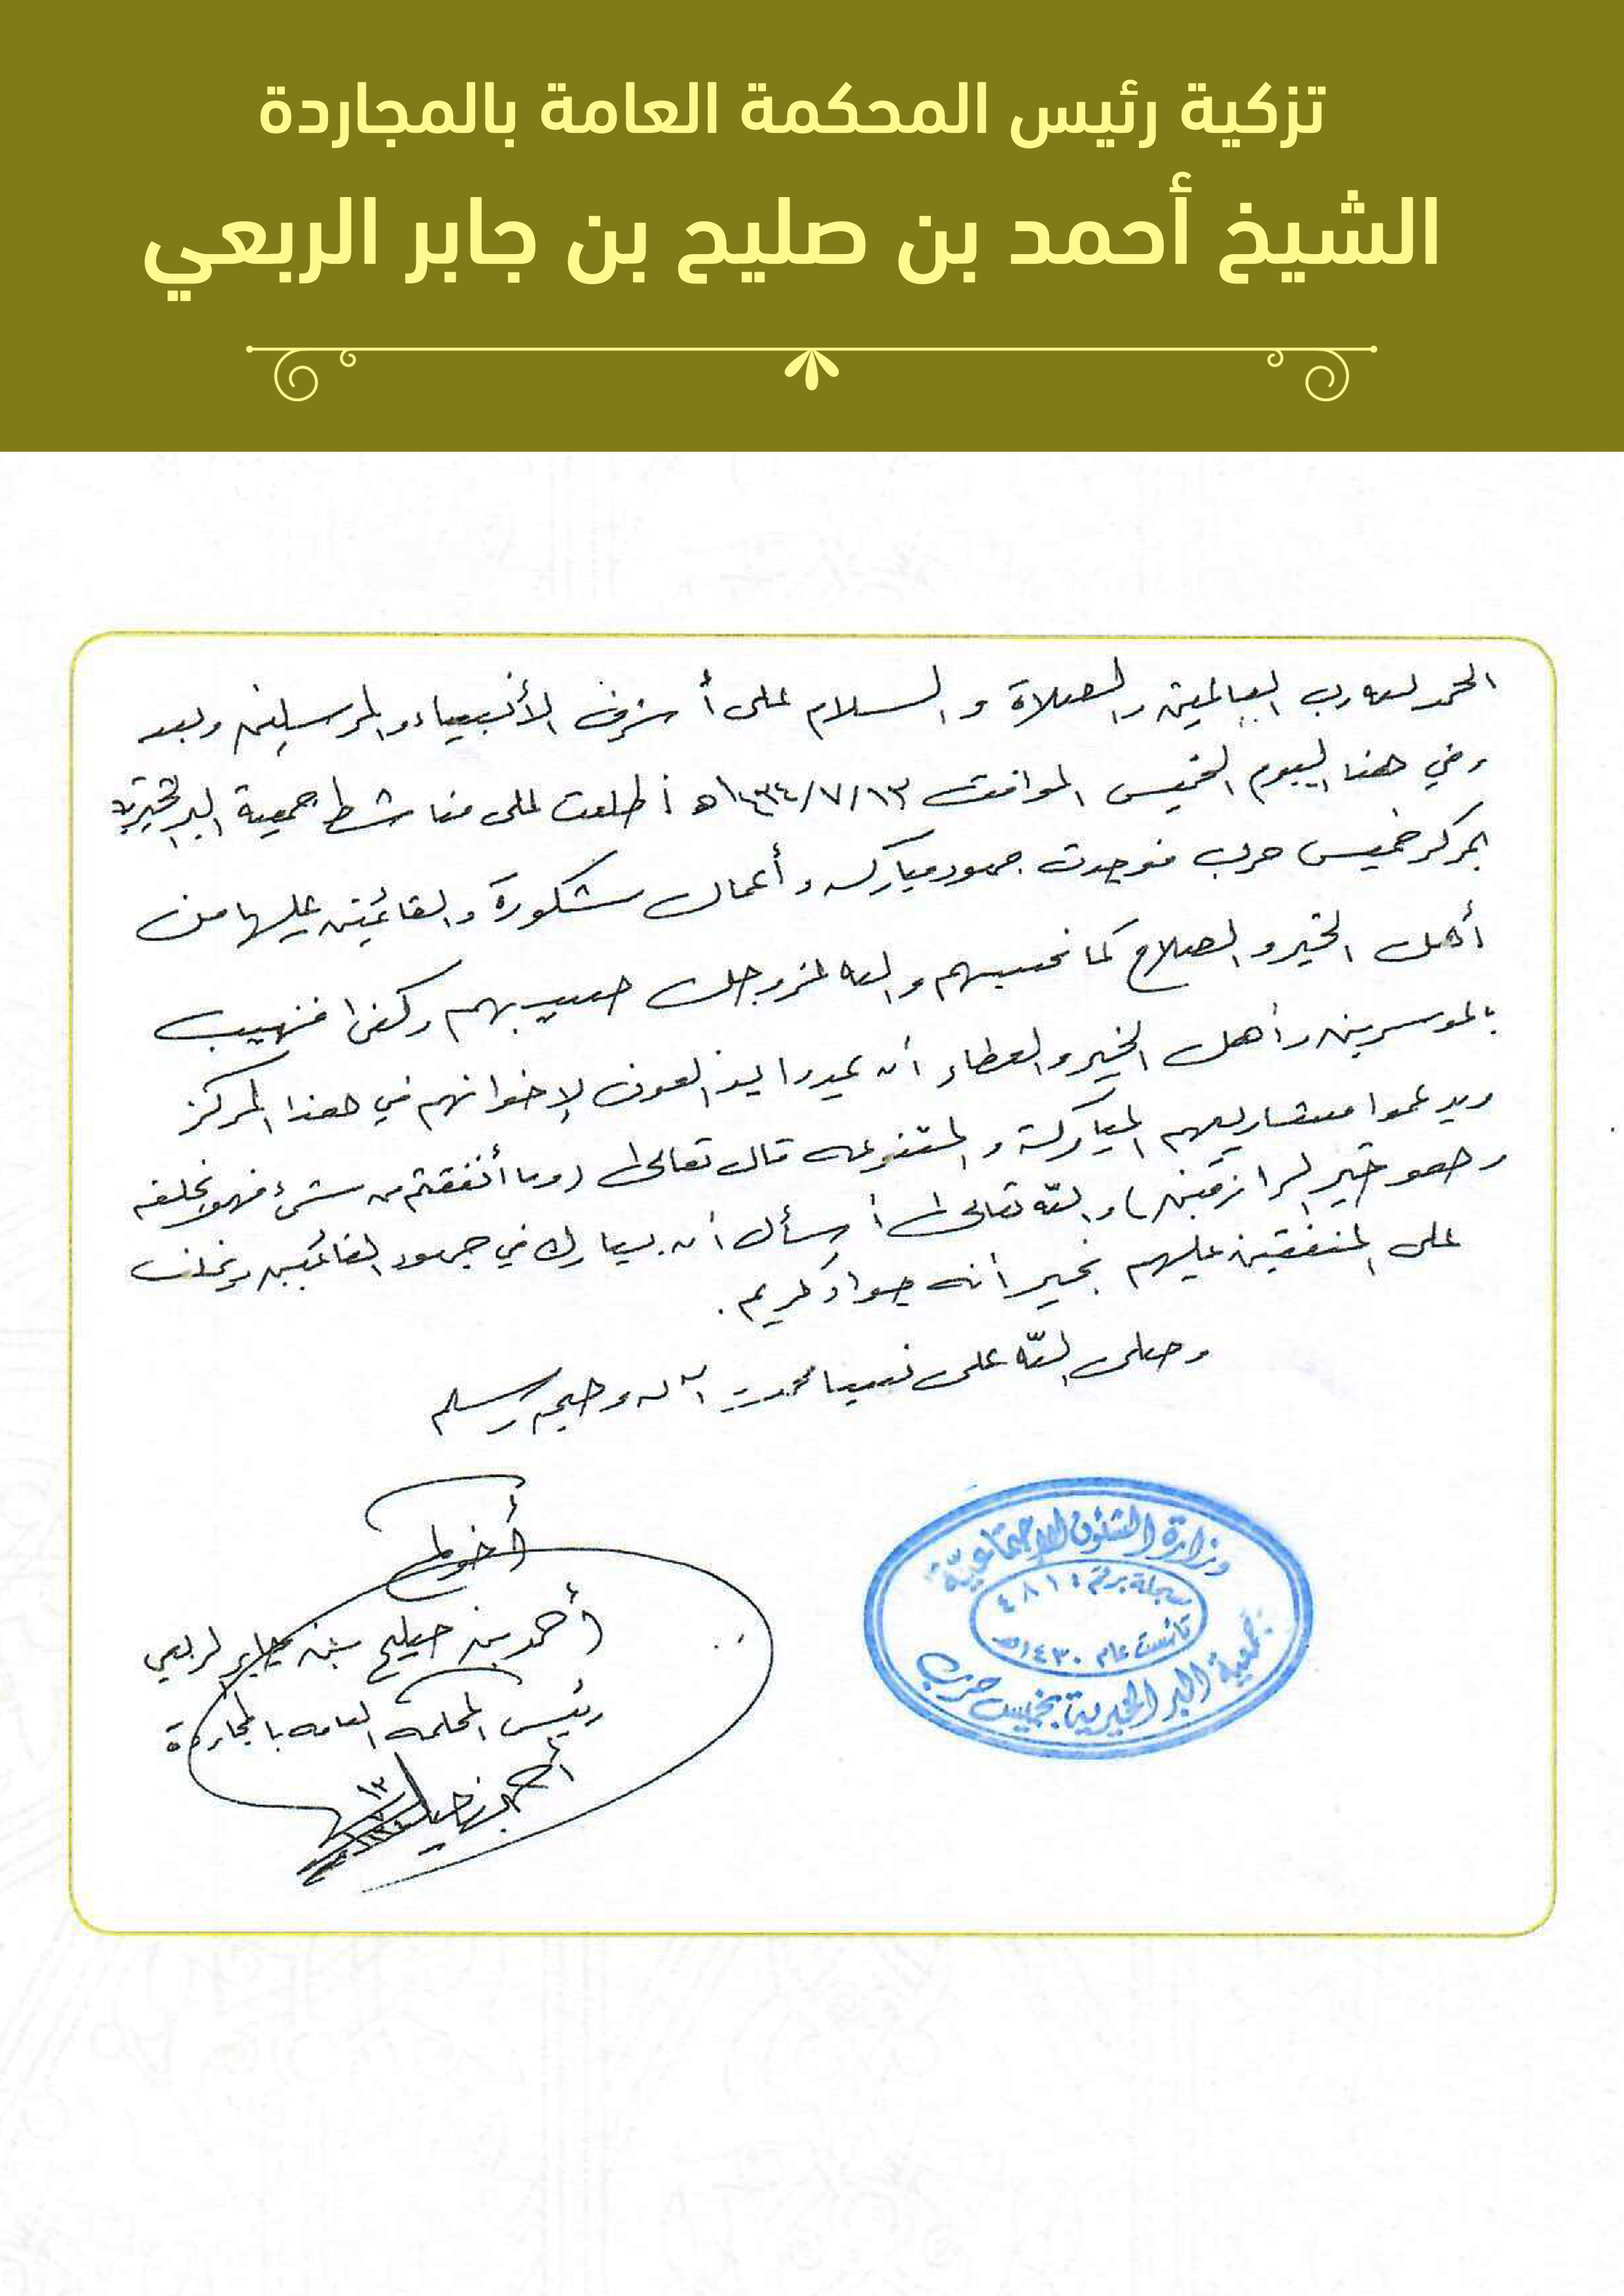 تزكية رئيس المحكمة العامة بالمجاردة
الشيخ أحمد بن صليح بن جابر الربعي
الحمد لله رب العالمين والصلاة والسلام على أشرف الأنبياء والمرسلين وبعد
وفي هذا اليوم الخميس الموافق ١٤٣٤/٧/١٣هـ أطلعت على مناشط جمعية البر الخيرية
بمركز خميس حرب فوجدت جهود مباركه وأعمال مشكورة والقائمين عليها من
أهل الخير والصلاح كما نحسبهم والله عزوجل حسيبهم وكفى فنهيب
بالموسرين وأهل الخير والعطاء أن يمدوا يد العون لإخوانهم في هذا المركز
ويدعموا مشاريعهم المباركة والمتنوعه قال تعالى (وما أنفقتم من شيء فهو يخلفه
وهو خير الرازقين) والله تعالى أسأل أن يبارك في جهود القائمين ويخلف
على المنفقين عليهم بخير أنه جواد كريم.
وصلى الله على نبينا محمد وآله وصحبه وسلم
أخوكم
أحمد بن صليح بن جابر الربعي
رئيس المحكمه العامه بالمجاردة
أحمد بن صليح
١٣
وزارة الشئون الاجتماعية
مسجلة برقم: ٤٨١
تأسست عام ١٤٣٠هـ
جمعية البر الخيرية بخميس حرب